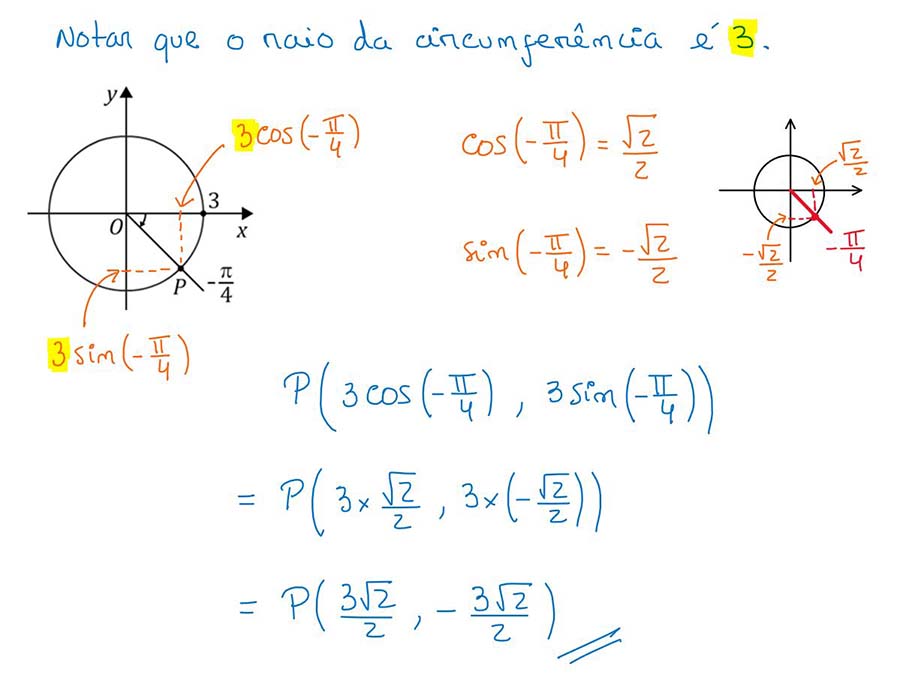 Notar que o raio da circunferência é 3.
y
3cos(-π/4)
3
O
x
P
-π/4
3sin(-π/4)
cos(-π/4) = √2/2
sin(-π/4) = -√2/2
√2/2
-√2/2
-π/4
P(3cos(-π/4) , 3sin(-π/4))
= P(3×√2/2 , 3×(-√2/2))
= P(3√2/2 , -3√2/2)